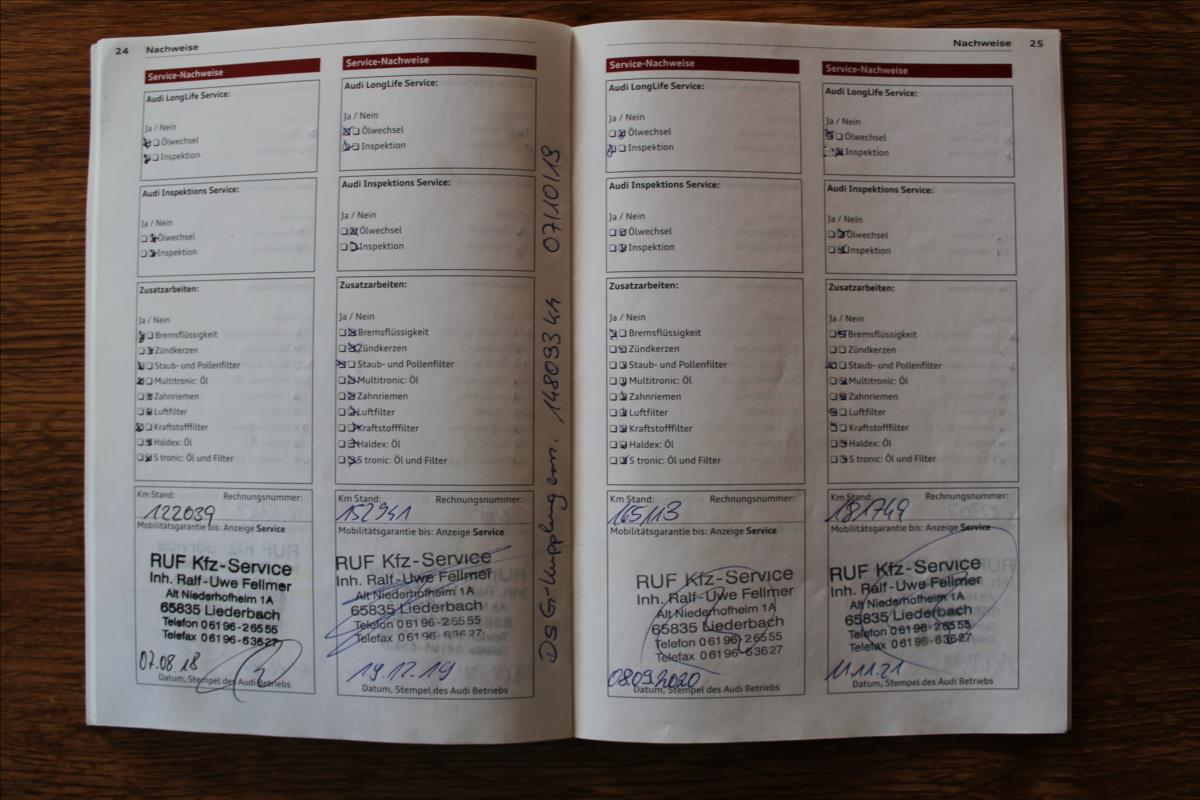 24 Nachweise
Service-Nachweise
Audi LongLife Service:
Ja / Nein
Ölwechsel
Inspektion
Audi Inspektions Service:
Ja / Nein
Ölwechsel
Inspektion
Zusatzarbeiten:
Ja / Nein
Bremsflüssigkeit
Zündkerzen
Staub- und Pollenfilter
Multitronic: Öl
Zahnriemen
Luftfilter
Kraftstofffilter
Haldex: Öl
S tronic: Öl und Filter
Km Stand: Rechnungsnummer:
122039
Mobilitätsgarantie bis: Anzeige Service
RUF Kfz-Service
Inh. Ralf-Uwe Fellmer
Alt Niederhofheim 1A
65835 Liederbach
Telefon 06196-26555
Telefax 06196-63627
07.08 18
Datum, Stempel des Audi Betriebs
Service-Nachweise
Audi LongLife Service:
Ja / Nein
Ölwechsel
Inspektion
Audi Inspektions Service:
Ja / Nein
Ölwechsel
Inspektion
Zusatzarbeiten:
Ja / Nein
Bremsflüssigkeit
Zündkerzen
Staub- und Pollenfilter
Multitronic: Öl
Zahnriemen
Luftfilter
Kraftstofffilter
Haldex: Öl
S tronic: Öl und Filter
Km Stand: Rechnungsnummer:
152941
Mobilitätsgarantie bis: Anzeige Service
RUF Kfz-Service
Inh. Ralf-Uwe Fellmer
Alt Niederhofheim 1A
65835 Liederbach
Telefon 06196-26555
Telefax 06196-63627
19.12.19
Datum, Stempel des Audi Betriebs
DSG-Kupplung ern. 07/10/18
Nachweise 25
Service-Nachweise
Audi LongLife Service:
Ja / Nein
Ölwechsel
Inspektion
Audi Inspektions Service:
Ja / Nein
Ölwechsel
Inspektion
Zusatzarbeiten:
Ja / Nein
Bremsflüssigkeit
Zündkerzen
Staub- und Pollenfilter
Multitronic: Öl
Zahnriemen
Luftfilter
Kraftstofffilter
Haldex: Öl
S tronic: Öl und Filter
Km Stand: Rechnungsnummer:
165113
Mobilitätsgarantie bis: Anzeige Service
RUF Kfz-Service
Inh. Ralf-Uwe Fellmer
Alt Niederhofheim 1A
65835 Liederbach
Telefon 06196-26555
Telefax 06196-63627
08.09.2020
Datum, Stempel des Audi Betriebs
Service-Nachweise
Audi LongLife Service:
Ja / Nein
Ölwechsel
Inspektion
Audi Inspektions Service:
Ja / Nein
Ölwechsel
Inspektion
Zusatzarbeiten:
Ja / Nein
Bremsflüssigkeit
Zündkerzen
Staub- und Pollenfilter
Multitronic: Öl
Zahnriemen
Luftfilter
Kraftstofffilter
Haldex: Öl
S tronic: Öl und Filter
Km Stand: Rechnungsnummer:
181749
Mobilitätsgarantie bis: Anzeige Service
RUF Kfz-Service
Inh. Ralf-Uwe Fellmer
Alt Niederhofheim 1A
65835 Liederbach
Telefon 06196-26555
Telefax 06196-63627
11.11.21
Datum, Stempel des Audi Betriebs